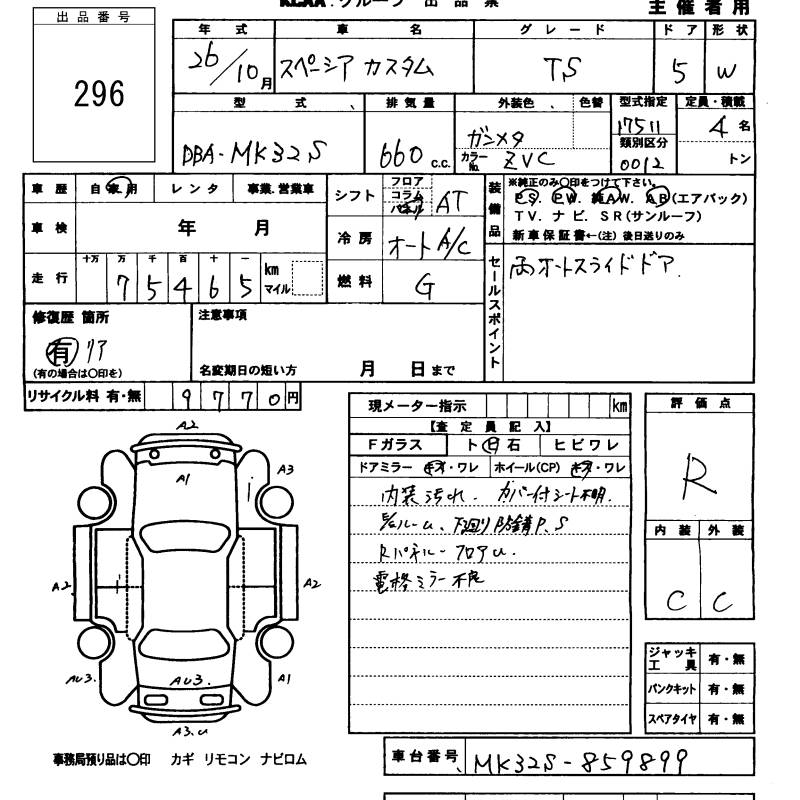 KCAA.グループ 出品票
主催者用
出品番号
296
年式 車名 グレード ドア 形状
26/10月 スペーシア カスタム TS 5 W
型式 排気量 外装色 色替 型式指定 定員・積載
DBA-MK32S 660 c.c. ガンメタ 17511 4名
カラーNo. ZVC 類別区分 0012 トン
車歴 自家用 レンタ 事業.営業車
車検 年 月
走行 十万 万 千 百 十 一
7 5 4 6 5 km マイル
シフト フロア コラム パネル AT
冷房 オートA/C
燃料 G
装備品 ※純正のみ○印をつけて下さい。
PS. PW. 純AW. AB(エアバック)
TV. ナビ. SR(サンルーフ)
新車保証書←(注)後日送りのみ
セールスポイント 両オートスライドドア.
修復歴 箇所
有 リア
(有の場合は○印を)
注意事項
名変期日の短い方 月 日まで
リサイクル料 有・無 9770円
現メーター指示 km
【査定員記入】
Fガラス ト日石 ヒビワレ
ドアミラー キズ・ワレ ホイール(CP) キズ・ワレ
内装汚れ. カバー付シート不明.
下廻り防錆P.S
Rパネル-フロアU.
電格ミラー不良
評価点
R
内装 外装
C C
A2
A1
A3
A2
A2
AU3.
AU3.
A1
A3.U
ジャッキ工具 有・無
パンクキット 有・無
スペアタイヤ 有・無
事務局預り品は○印 カギ リモコン ナビロム
車台番号 MK32S-859899